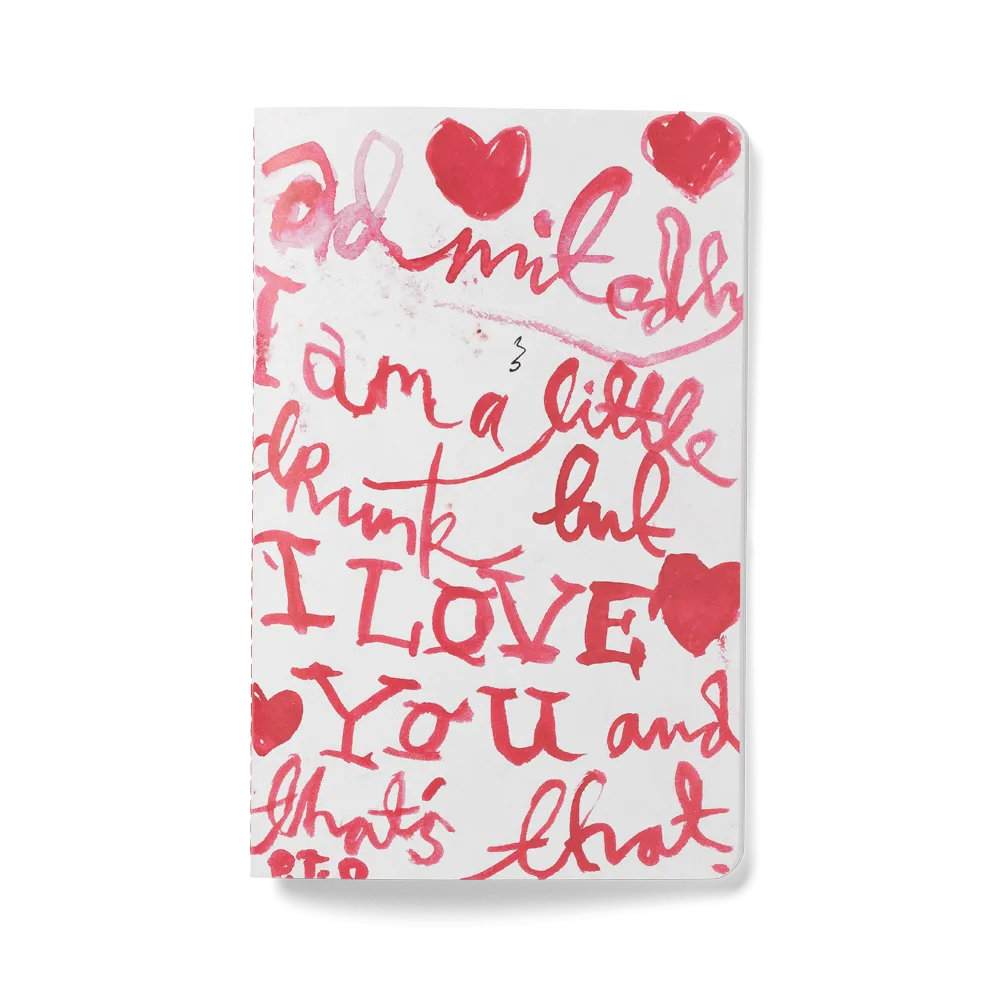 Admitadly
I am a little
drunk but
I LOVE
YOU and
that's that.
P.T.O